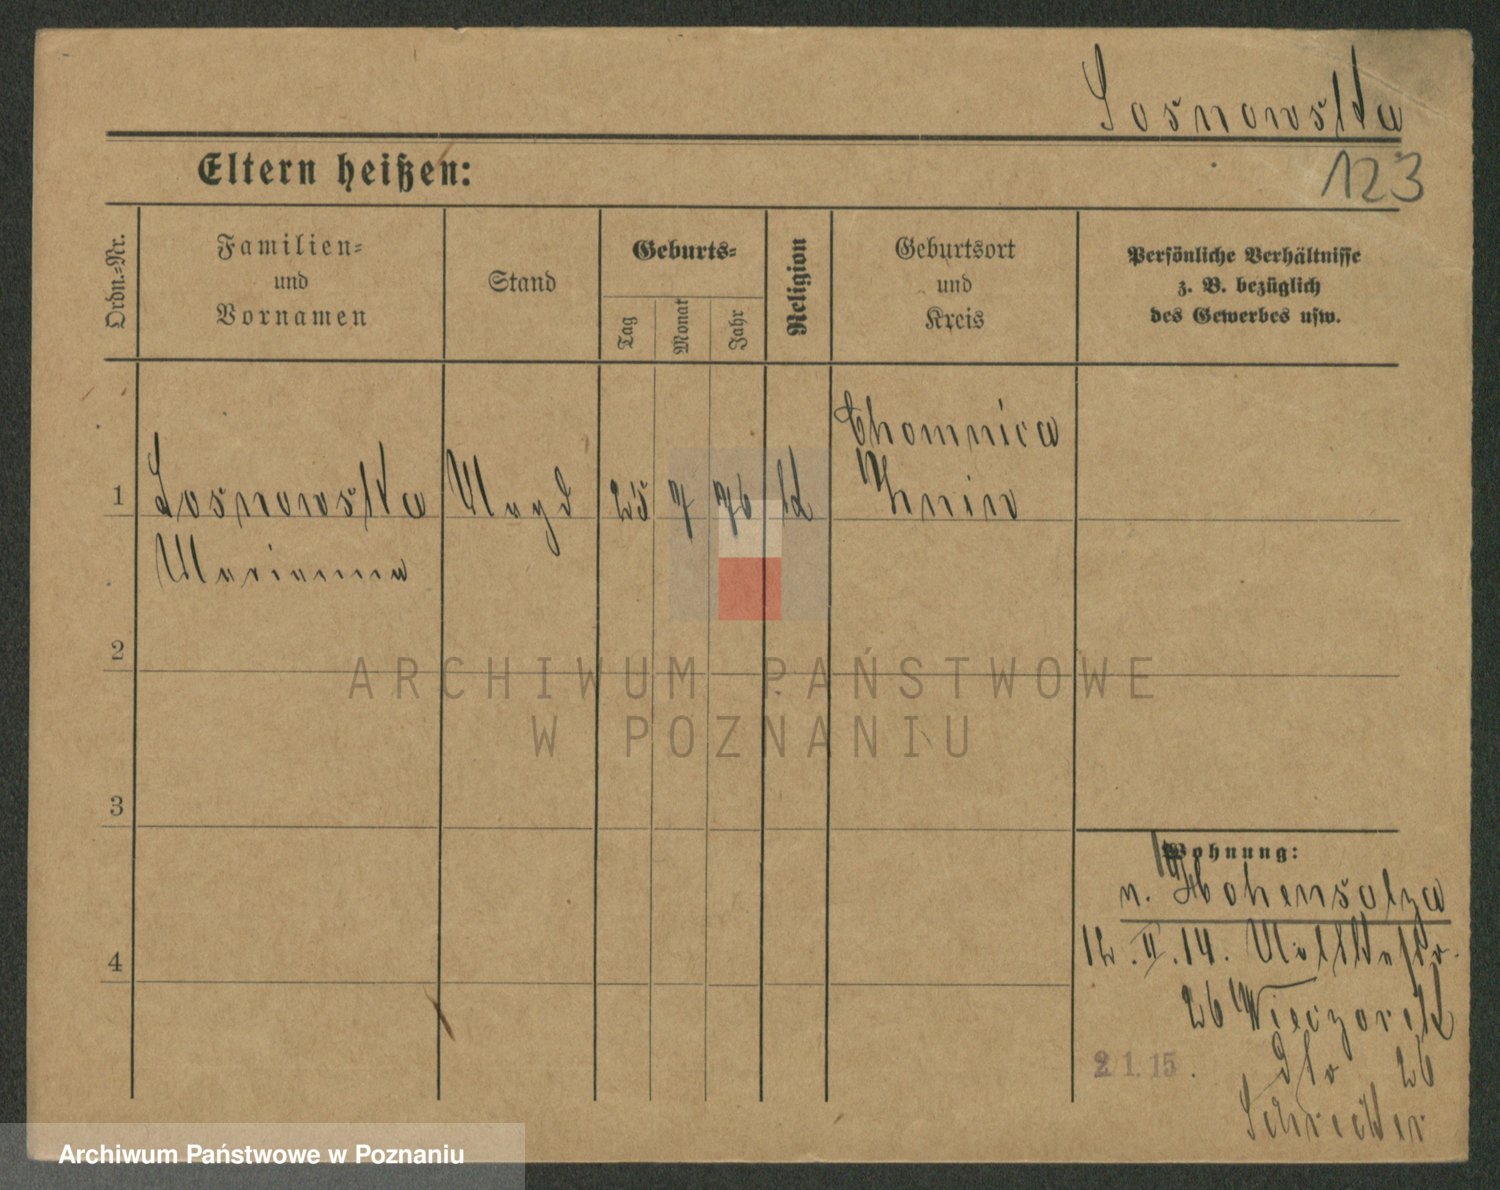 Sosnowska
Eltern heißen:
123
Ordn.=Nr.
Familien=
und
Vornamen
Stand
Geburts=
Tag
Monat
Jahr
Religion
Geburtsort
und
Kreis
Persönliche Verhältnisse
z. B. bezüglich
des Gewerbes usw.
1
Sosnowska
Marianna
Magd
25
7
76
k
Chomnica
Znin
2
3
4
ARCHIWUM PAŃSTWOWE
W POZNANIU
Wohnung:
n. Hohensalza
12.II.14.
26 Wieczorek
2 1. 15.
dto 26
Archiwum Państwowe w Poznaniu